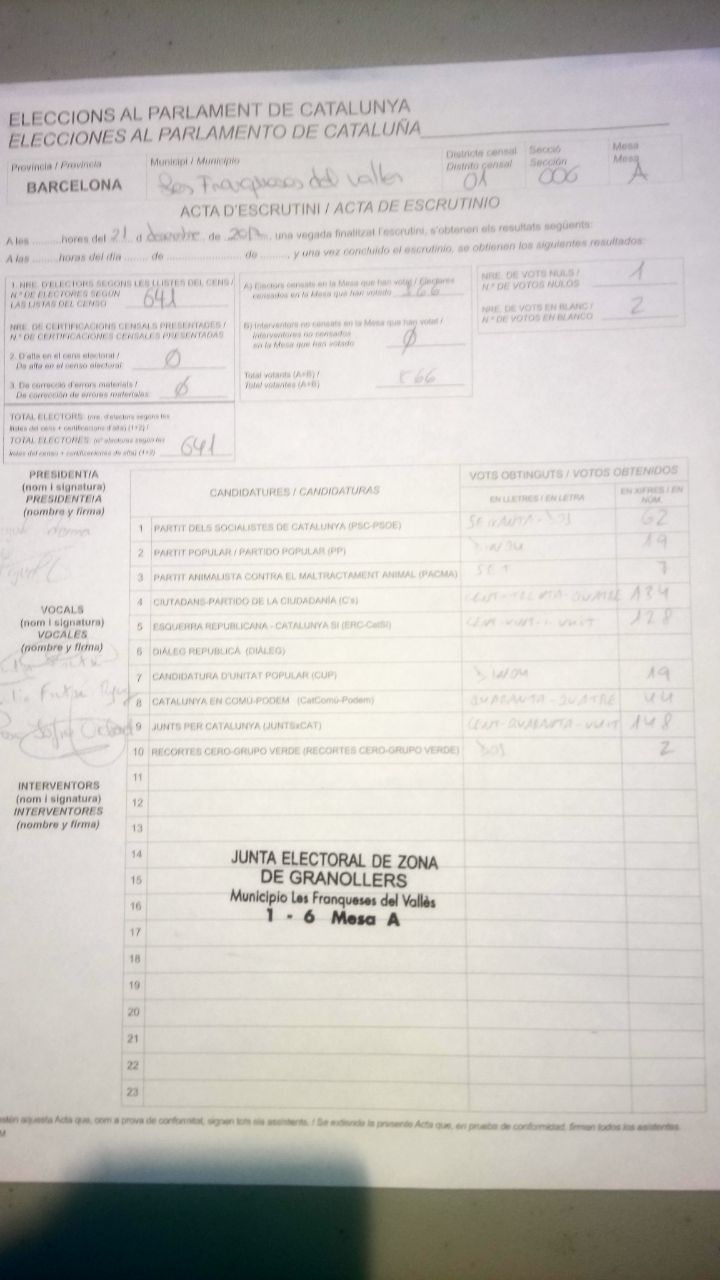 ELECCIONS AL PARLAMENT DE CATALUNYA
ELECCIONES AL PARLAMENTO DE CATALUÑA
Província / Provincia
BARCELONA
Municipi / Municipio
Les Franqueses del Vallès
Districte censal
Distrito censal
01
Secció
Sección
006
Mesa
Mesa
A
ACTA D'ESCRUTINI / ACTA DE ESCRUTINIO
A les ..........hores del 21 d desembre de 2017, una vegada finalitzat l'escrutini, s'obtenen els resultats següents:
A las ..........horas del día ...... de .......................... de ........., y una vez concluido el escrutinio, se obtienen los siguientes resultados:
1. NRE. D'ELECTORS SEGONS LES LLISTES DEL CENS /
N.º DE ELECTORES SEGÚN
LAS LISTAS DEL CENSO
641
NRE. DE CERTIFICACIONS CENSALS PRESENTADES /
N.º DE CERTIFICACIONES CENSALES PRESENTADAS
2. D'alta en el cens electoral /
De alta en el censo electoral:
Ø
3. De correcció d'errors materials /
De corrección de errores materiales:
Ø
TOTAL ELECTORS: (nre. d'electors segons les
llistes del cens + certificacions d'alta) (1+2) /
TOTAL ELECTORES: (nº electores según las
listas del censo + certificaciones de alta) (1+2)
641
A) Electors censats en la Mesa que han votat / Electores
censados en la Mesa que han votado
566
B) Interventors no censats en la Mesa que han votat /
Interventores no censados
en la Mesa que han votado
Ø
Total votants (A+B) /
Total votantes (A+B)
566
NRE. DE VOTS NULS /
N.º DE VOTOS NULOS
1
NRE. DE VOTS EN BLANC /
N.º DE VOTOS EN BLANCO
2
PRESIDENT/A
(nom i signatura)
PRESIDENTE/A
(nombre y firma)
VOCALS
(nom i signatura)
VOCALES
(nombre y firma)
INTERVENTORS
(nom i signatura)
INTERVENTORES
(nombre y firma)
CANDIDATURES / CANDIDATURAS
VOTS OBTINGUTS / VOTOS OBTENIDOS
EN LLETRES / EN LETRA
EN XIFRES / EN NÚM.
1 PARTIT DELS SOCIALISTES DE CATALUNYA (PSC-PSOE) SEIXANTA-DOS 62
2 PARTIT POPULAR / PARTIDO POPULAR (PP) DINOU 19
3 PARTIT ANIMALISTA CONTRA EL MALTRACTAMENT ANIMAL (PACMA) SET 7
4 CIUTADANS-PARTIDO DE LA CIUDADANÍA (C's) CENT-TRENTA-QUATRE 134
5 ESQUERRA REPUBLICANA - CATALUNYA SÍ (ERC-CatSí) CENT-VINT-I-VUIT 128
6 DIÀLEG REPUBLICÀ (DIÀLEG)
7 CANDIDATURA D'UNITAT POPULAR (CUP) DINOU 19
8 CATALUNYA EN COMÚ-PODEM (CatComú-Podem) QUARANTA-QUATRE 44
9 JUNTS PER CATALUNYA (JUNTSxCAT) CENT-QUARANTA-VUIT 148
10 RECORTES CERO-GRUPO VERDE (RECORTES CERO-GRUPO VERDE) DOS 2
11
12
13
14
15
16
17
18
19
20
21
22
23
JUNTA ELECTORAL DE ZONA
DE GRANOLLERS
Municipio Les Franqueses del Vallès
1 - 6 Mesa A
aquesta Acta que, com a prova de conformitat, signen tots els assistents. / Se extiende la presente Acta que, en prueba de conformidad, firman todos los asistentes.